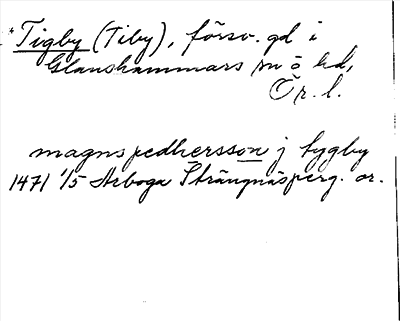 *Tigby (Tiby), försv. gd i
Glanshammars sn o hd,
Ör. l.
magns pedhersson j tygby
1471 1/5 Arboga Strängnäsperg. or.